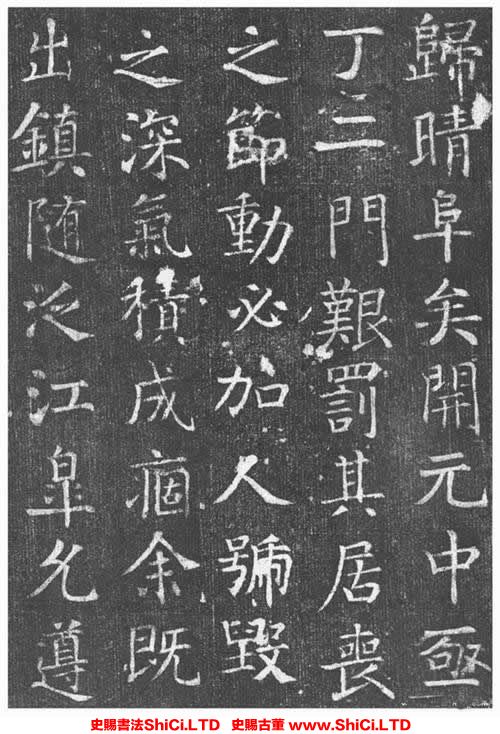 歸晴阜矣開元中亟
丁二門艱罰其居喪
之節動必加人號毀
之深氣積成痼余既
出鎮随泛江皐允遵
史賜書法ShiCi.LTD 史賜古董 www.ShiCi.LTD